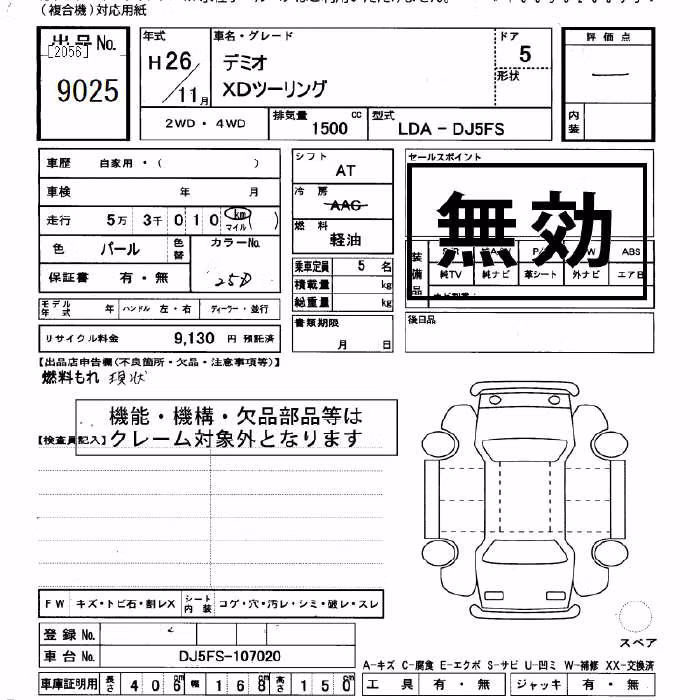 (複合機)対応用紙
出品No.
[2056]
9025
年式
H26/11月
車名・グレード
デミオ
XDツーリング
ドア
5
形状
評価点
―
内装
2WD・4WD
排気量
1500 cc
型式
LDA-DJ5FS
車歴 自家用・( )
車検 年 月
走行 5万 3千 0 1 0 km マイル ( )
色 パール 色替 カラーNo.
25D
保証書 有・無
モデル年式 年 ハンドル 左・右 ディーラー・並行
リサイクル料金 9,130 円 預託済
シフト
AT
冷房
AAC
燃料
軽油
乗車定員 5 名
積載量 kg
総重量 kg
書類期限
月 日
セールスポイント
無効
装備品
ABS
純TV 純ナビ 革シート 外ナビ エアB
後日品
【出品店申告欄(不良箇所・欠品・注意事項等)】
燃料もれ 現状
機能・機構・欠品部品等は
クレーム対象外となります
【検査員記入】
FW キズ・トビ石・割レX シート内装 コゲ・穴・汚レ・シミ・破レ・スレ
登録No.
車台No. DJ5FS-107020
車庫証明用 長さ 406cm 幅 168cm 高さ 150cm
スペア
A-キズ C-腐食 E-エクボ S-サビ U-凹ミ W-補修 XX-交換済
工具 有・無 ジャッキ 有・無